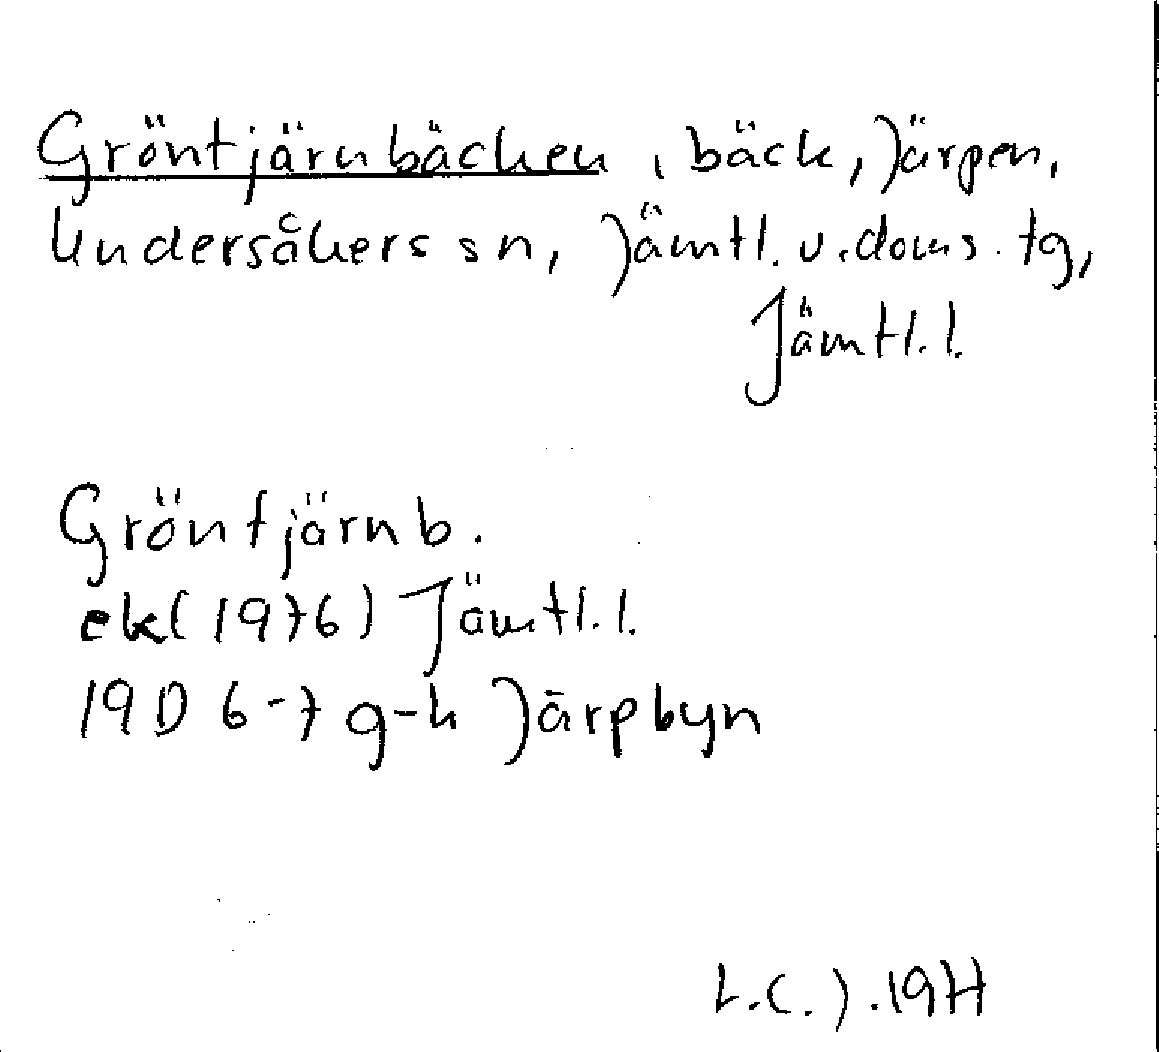 Gröntjärnbäcken, bäck, Järpen,
Undersåkers sn, Jämtl. v. doms. tg,
Jämtl. l.
Gröntjärnb.
ek (1976) Jämtl. l.
19D 6-7 g-h Järpbyn
L.C.J. 1977